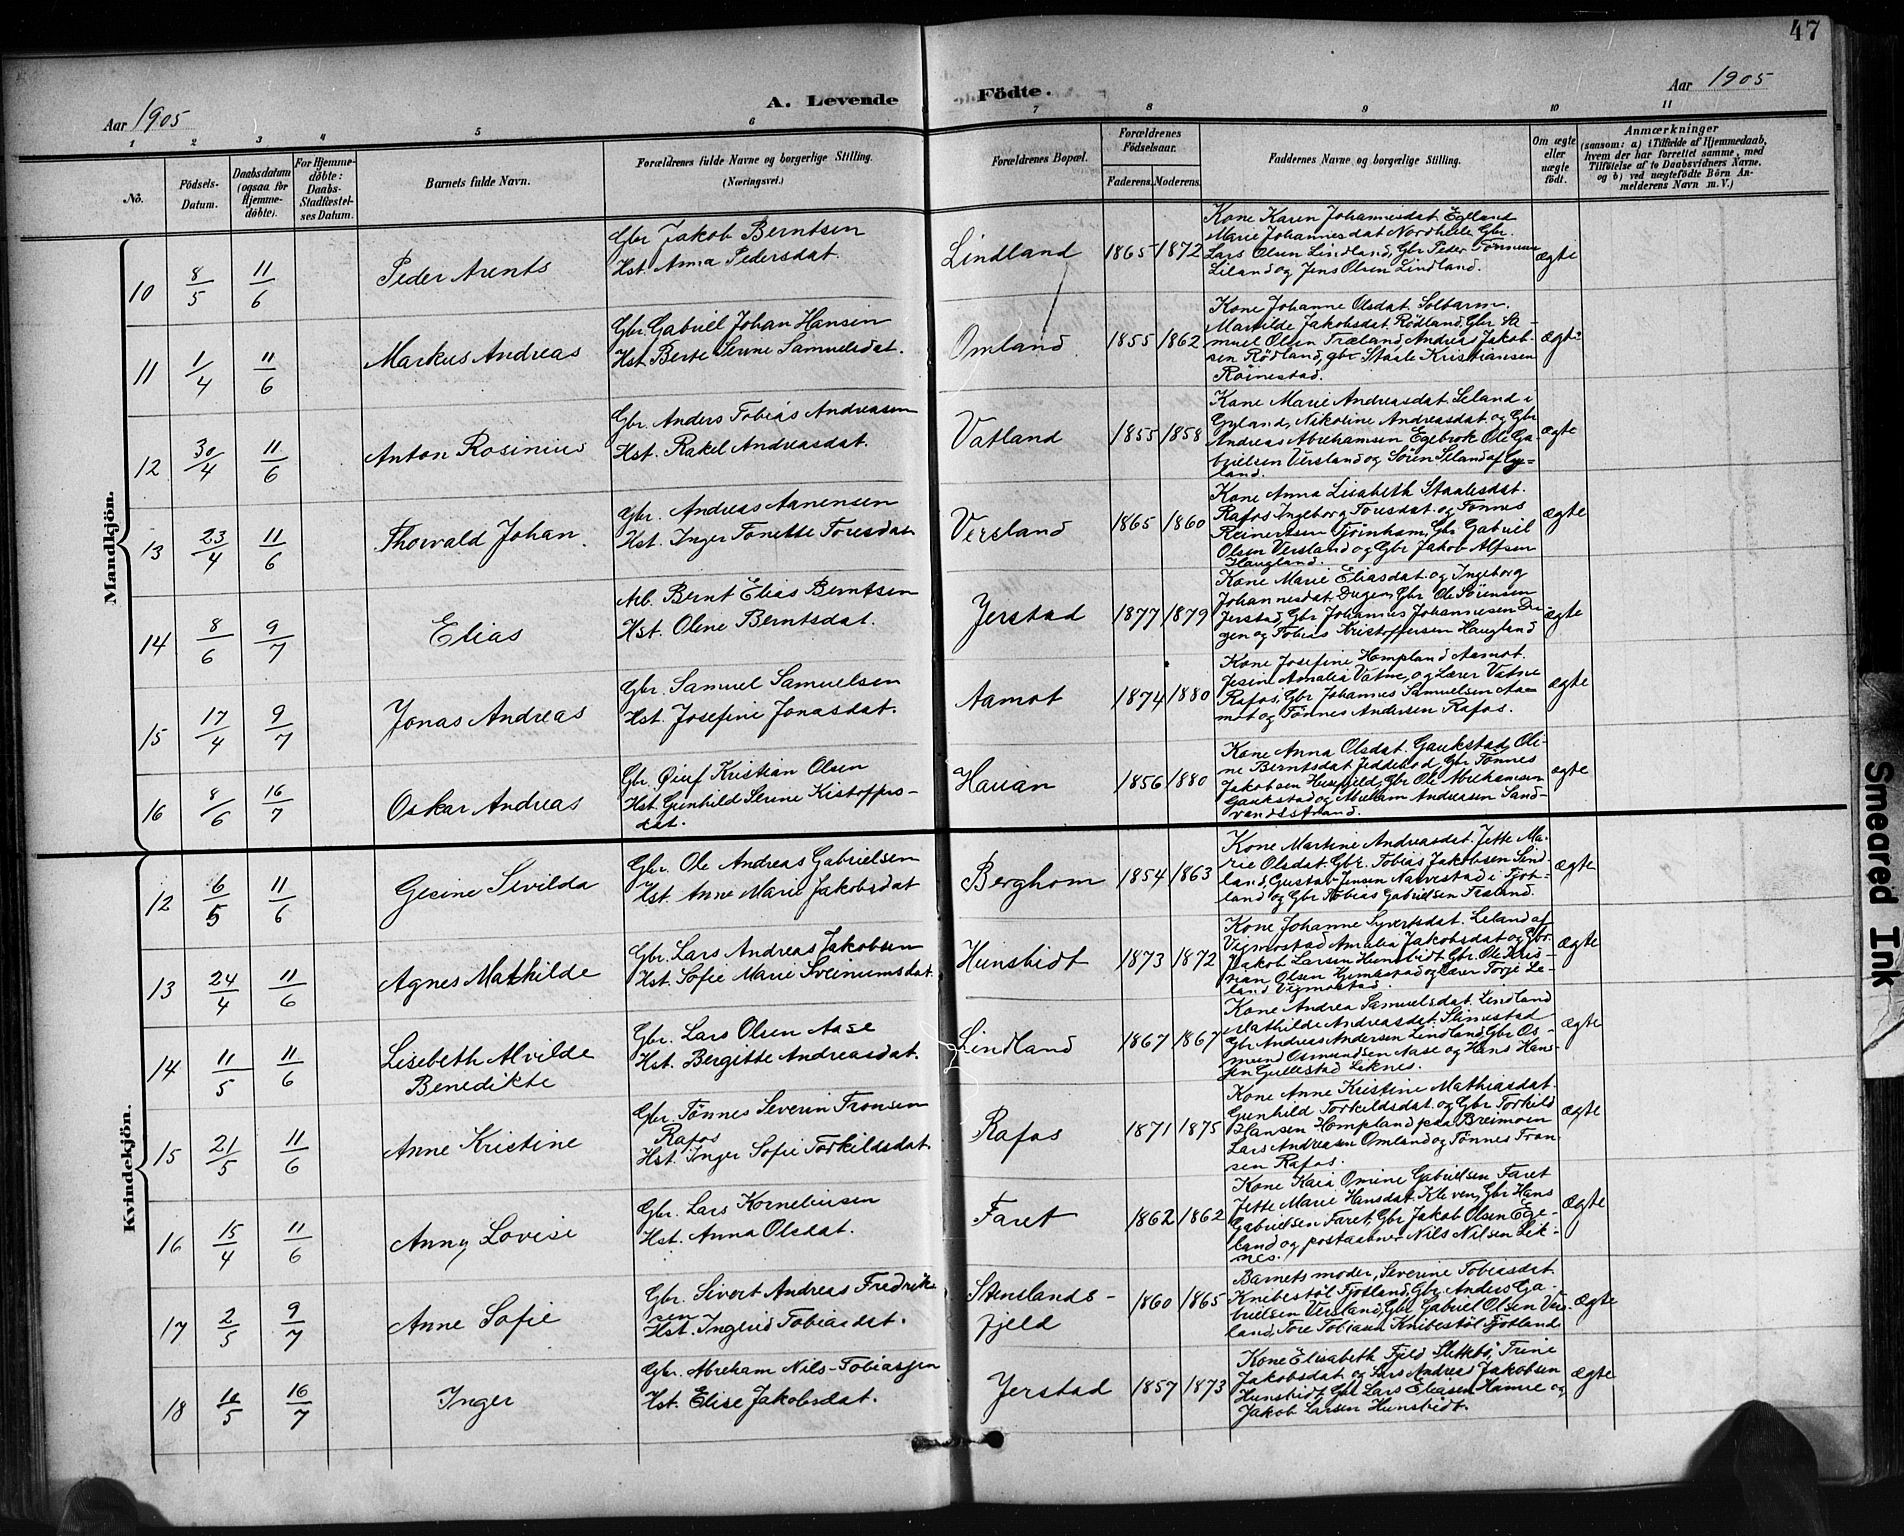 47
Aar 1905
A. Levende Födte.
Aar 1905
1 2 3 4 5 6 7 8 9 10 11
No.
Födsels-Datum.
Daabsdatum (ogsaa for Hjemme-döbte).
For Hjemme-döbte: Daabs-Stadfæstel-ses Datum.
Barnets fulde Navn.
Forældrenes fulde Navne og borgerlige Stilling. (Næringsvei.)
Forældrenes Bopæl.
Forældrenes Födselsaar.
Faderens. Moderens.
Faddernes Navne og borgerlige Stilling.
Om ægte eller uægte födt.
Anmærkninger
(saasom: a) i Tilfælde af Hjemmedaab, hvem der har forrettet samme, med Tilföielse af to Daabsvidners Navne, og b) ved uægtefödte Börn An-melderens Navn m. V.)
Mandkjön.
10 8/5 11/6 Peder Arents
Gbr Jakob Berntsen
Hst. Anna Pedersdat.
Lindland 1865 1872
Kone Karen Johannesdat. Egeland
Marie Johannesdat Nordhelle, Gbr.
Lars Olsen Lindland, Gbr Peder Tönnesen
Liland og Jens Olsen Lindland.
ægte
11 1/4 11/6 Markus Andreas
Gbr. Gabriel Johan Hansen
Hst. Berte Serine Samuelsdat.
Omland 1855 1862
Kone Johanne Olsdat. Solbarm.
Mathilde Jakobsdat. Rödland, Gbr Sa-
muel Olsen Træland, Andreas Jakob-
sen Rödland, gbr Staale Kristiansen
Röinestad.
ægte
12 30/4 11/6 Anton Rosinius
Gbr. Anders Tobias Andreasen
Hst. Rakel Andreasdat.
Vatland 1855 1858
Kone Marie Andreasdat. Seland i
Gyland, Nikoline Andreasdat og Gbr
Andreas Abrahamsen Egebrok Ole Ga-
brielsen Versland og Sören Seland af Gy-
land.
ægte
13 23/4 11/6 Thorvald Johan
Gbr. Andreas Aanensen
Hst. Inger Tonette Toresdat
Versland 1865 1860
Kone Anna Lisabeth Staalesdat.
Rafos Ingeborg Toresdat. og Tönnes
Reinertsen Tjörnham, Gbr Gabriel
Olsen Versland og Gbr Jakob Alfsen
Haugland.
ægte
14 8/6 9/7 Elias
Arb. Bernt Elias Berntsen
Hst. Olene Berntsdat.
Jerstad 1877 1879
Kone Marie Eliasdat. og Ingeborg
Johannesdat. Dugen, Gbr Ole Sörensen
Jerstad, Gbr Johannes Johannesen Du-
gen og Tobias Kristoffersen Haugland
ægte
15 17/4 9/7 Jonas Andreas
Gbr. Samuel Samuelsen
Hst. Josefine Jonasdat.
Aamot 1874 1880
Kone Josefine Hompland Aamot.
Jesine Amalia Vatne, og Lærer Vatne
Rafos, Gbr Johannes Samuelsen Aa-
mot og Tönnes Andersen Rafos.
ægte
16 8/6 16/7 Oskar Andreas
Gbr Kristian Olsen
Hst. Gunhild Serine Kistoffers-
dat.
1856 1880
Kone Anna Olsdat. Gaukstad, Oli-
ne Berntsdat. Gbr Tönnes
Jakobsen Gbr Ole Abrahamsen
Gaukstad og Abraham Andreasen Sand-
vandsstrand.
ægte
Kvindekjön.
12 6/5 11/6 Gesine Sevilda
Gbr. Ole Andreas Gabrielsen
Hst. Anne Marie Jakobsdat
Berghom 1854 1863
Kone Martine Andreasdat. Jette Ma-
rie Olsdat. Gbr. Tobias Jakobsen Lind-
land, Gustav Jensen Narvestad i Fjot-
land og Gbr Tobias Gabrielsen
ægte
13 24/4 11/6 Agnes Mathilde
Gbr. Lars Andreas Jakobsen
Hst. Sofie Marie Sveinumsdat.
Hunsbidt 1873 1872
Kone Johanne Syvertsdat. Leland af
Vigmostad Amalia Jakobsdat og Gbr
Jakob Larsen Hunsbidt Gbr. Ole Kris-
tian Olsen og lærer Torje Le-
land Vigmostad.
ægte
14 11/5 11/6 Lisebeth Alvilde
Benedikte
Gbr. Lars Olsen Aase
Hst. Bergitte Andreasdat.
Lindland 1867 1867
Kone Andrea Samuelsdat. Lindland
Mathilde Andreasdat. Stinestad
Gbr Andreas Andersen Lindland, Gbr Os-
mund Osmundsen Aase og Hans Hans-
sen Gullestad Liknes.
ægte
15 21/5 11/6 Anne Kristine
Gbr. Tönnes Severin Tronsen
Rafos
Hst. Inger Sofie Torkildsdat.
Rafos 1871 1875
Kone Anne Kristine Mathiasdat.
Gunhild Torkildsdat. og Gbr Torkild
Hansen Hompland paa Breimoen
Lars Andreasen Omland og Tönnes Tron
sen Rafos.
ægte
16 15/4 11/6 Anny Lovise
Gbr. Lars Korneliusen
Hst. Anna Olsdat.
Faret 1862 1862
Kone Kaia Omine Gabrielsen Faret
Jette Marie Hansdat. Kleven, Gbr Hans
Gabrielsen Faret, Gbr Jakob Olsen Ege-
land og postaabner Nils Nilsen Lik-
nes.
ægte
17 2/5 9/7 Anne Sofie
Gbr. Sivert Andreas Fredrik
sen
Hst. Ingerid Tobiasdat.
Stenslands-
fjeld
1860 1865
Barnets moder, Severine Tobiasdat.
Knibestöl Fjotland, Gbr. Anders Ga-
brielsen Versland, Gbr Gabriel Olsen Vers-
land, Tore Tobiasen Knibestöl Fjotland
ægte
18 16/5 16/7 Inger
Gbr. Abraham Nils Tobiassen
Hst. Elise Jakobsdat.
Jerstad 1857 1873
Kone Elisabeth Fjeld Slettebö, Trine
Jakobsdat og Lars Andreas Jakobsen
Hunsbidt, Gbr Lars Eliasen Hamre og
Jakob Larsen Hunsbidt.
ægte
Smeared Ink